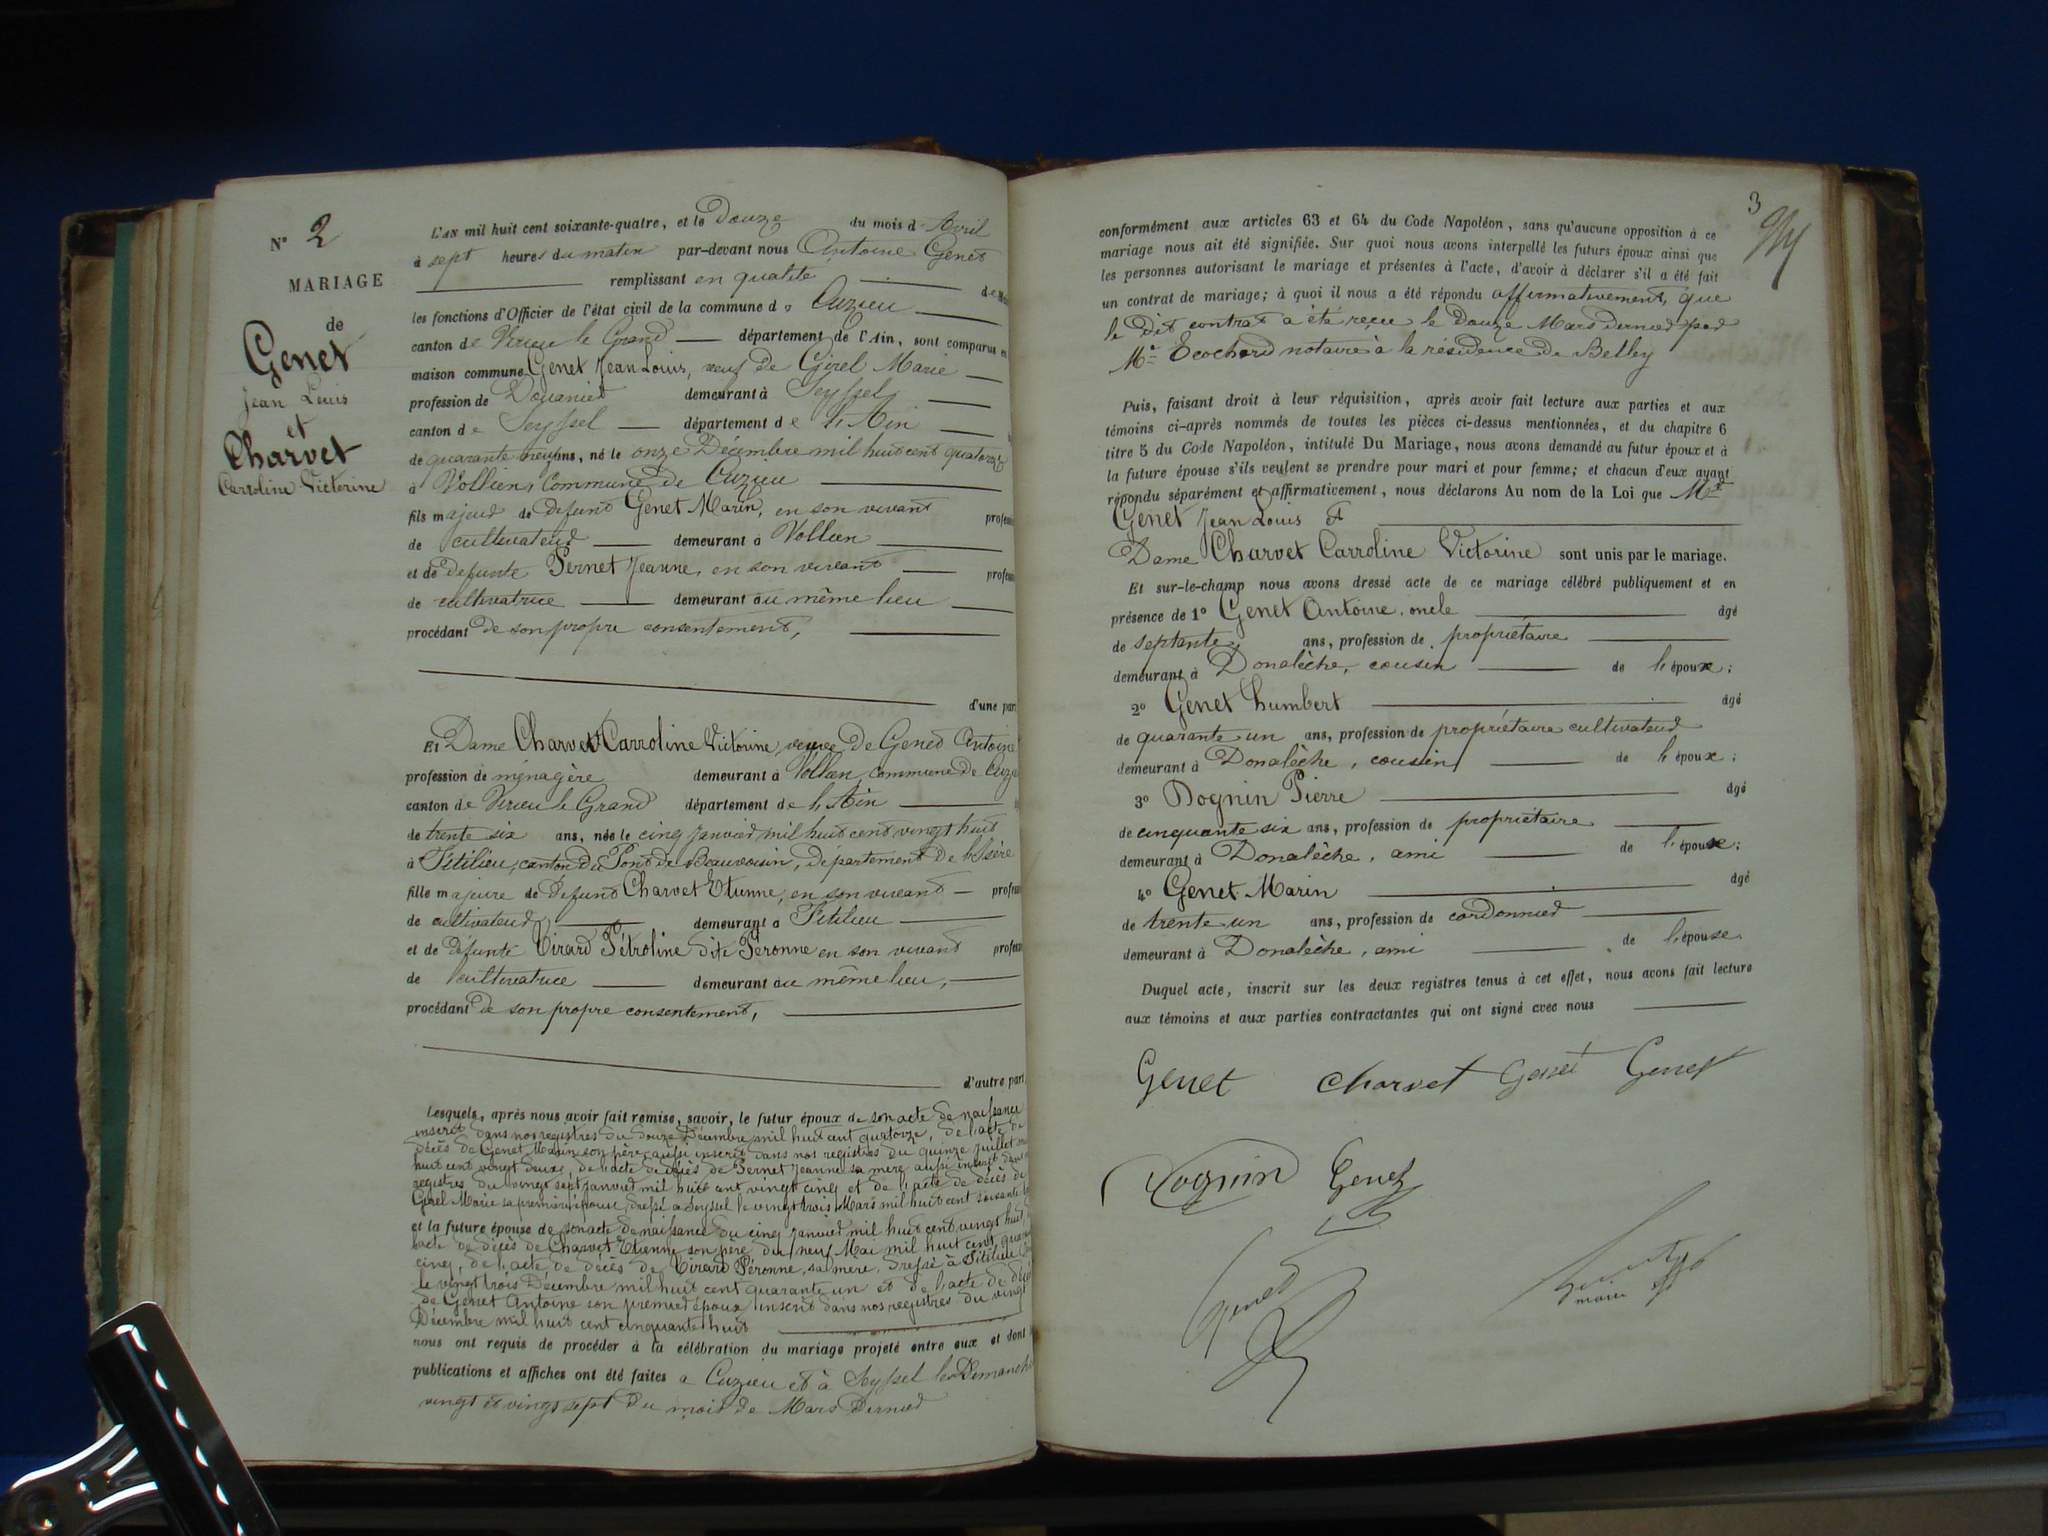 N° 2
MARIAGE
de
Genet
Jean Louis
et
Charvet
Carroline Victorine
L'AN mil huit cent soixante-quatre, et le Douze du mois d' Avril
à sept heures du matin par-devant nous Antoine Genet
remplissant en qualité de
les fonctions d'Officier de l'état civil de la commune de Cuzieu
canton de Virieu le Grand département de l'Ain, sont comparus en
maison commune Genet Jean Louis, veuf de Girel Marie
profession de Douanier demeurant à Seyssel
canton de Seyssel département de l'Ain
de quarante neuf ans, né le onze Décembre mil huit cent quatorze
à Vollien, Commune de Cuzieu
fils majeur de défunt Genet Marin, en son vivant
de cultivateur demeurant à Vollien
et de défunte Pernet Jeanne, en son vivant
de cultivatrice demeurant au même lieu
procédant de son propre consentement,
d'une part
Et Dame Charvet Carroline Victorine, veuve de Genet Antoine
profession de ménagère demeurant à Vollien, commune de
canton de Virieu le Grand département de l'Ain
de trente six ans, née le cinq Janvier mil huit cent vingt huit
à Fitilieu, canton du Pont de Beauvoisin, Département de l'Isère
fille majeure de défunt Charvet Etienne, en son vivant
de cultivateur demeurant à Fitilieu
et de défunte Tirard Pétroline dite Péronne en son vivant
de cultivatrice demeurant au même lieu,
procédant de son propre consentement,
d'autre part.
Lesquels, après nous avoir fait remise, savoir, le futur époux de son acte de naissance
inscrit dans nos registres du douze Décembre mil huit cent quatorze, de l'acte de
décès de Genet Marin son père aussi inscrit dans nos registres du quinze Juillet
huit cent vingt deux, de l'acte de décès de Pernet Jeanne sa mère aussi inscrit dans
registres du vingt sept Janvier mil huit cent vingt cinq et de l'acte de décès de
Girel Marie sa première épouse, dressé à Seyssel le vingt trois Mars mil huit cent soixante
et la future épouse de son acte de naissance du cinq Janvier mil huit cent vingt huit,
l'acte de décès de Charvet Etienne son père du neuf Mai mil huit cent
cinq, de l'acte de décès de Tirard Péronne, sa mère, dressé à Fitilieu
le vingt trois Décembre mil huit cent quarante un et de l'acte de
de Genet Antoine son premier époux inscrit dans nos registres du vingt
Décembre mil huit cent cinquante huit
nous ont requis de procéder à la célébration du mariage projeté entre eux et dont
publications et affiches ont été faites à Cuzieu et à Seyssel les Dimanches
vingt et vingt sept du mois de Mars Dernier
3
conformément aux articles 63 et 64 du Code Napoléon, sans qu'aucune opposition à ce
mariage nous ait été signifiée. Sur quoi nous avons interpellé les futurs époux ainsi que
les personnes autorisant le mariage et présentes à l'acte, d'avoir à déclarer s'il a été fait
un contrat de mariage; à quoi il nous a été répondu affirmativement, que
le dit contrat a été reçu le Douze Mars Dernier par
Me Ecochard notaire à la résidence de Belley
Puis, faisant droit à leur réquisition, après avoir fait lecture aux parties et aux
témoins ci-après nommés de toutes les pièces ci-dessus mentionnées, et du chapitre 6
titre 5 du Code Napoléon, intitulé Du Mariage, nous avons demandé au futur époux et à
la future épouse s'ils veulent se prendre pour mari et pour femme; et chacun d'eux ayant
répondu séparément et affirmativement, nous déclarons Au nom de la Loi que Mr
Genet Jean Louis Et
Dame Charvet Carroline Victorine sont unis par le mariage.
Et sur-le-champ nous avons dressé acte de ce mariage célébré publiquement et en
présence de 1° Genet Antoine, oncle âgé
de septante ans, profession de propriétaire
demeurant à Donalèche, cousin de l'époux;
2° Genet humbert âgé
de quarante un ans, profession de propriétaire cultivateur
demeurant à Donalèche, cousin de l'époux;
3° Dognin Pierre âgé
de cinquante six ans, profession de propriétaire
demeurant à Donalèche, ami de l'épouse;
4° Genet Marin âgé
de trente un ans, profession de cordonnier
demeurant à Donalèche, ami de l'épouse
Duquel acte, inscrit sur les deux registres tenus à cet effet, nous avons fait lecture
aux témoins et aux parties contractantes qui ont signé avec nous
Genet Charvet Genet Genet
Dognin Genet
Genet
maire